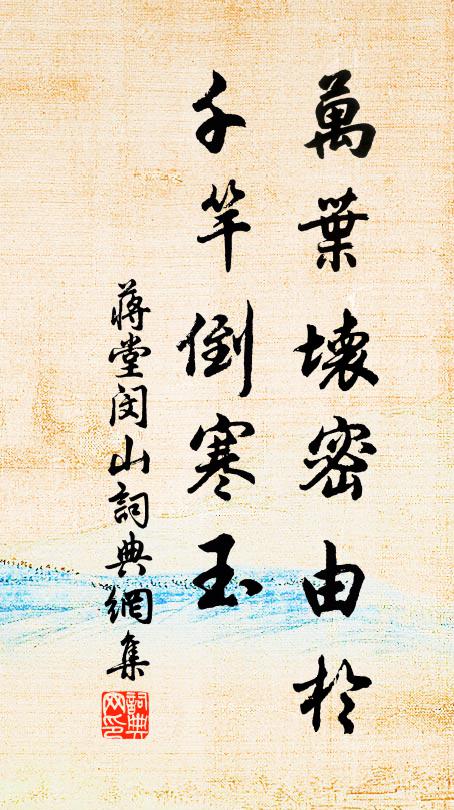 萬葉壞密由於
千竿倒寒玉
蔣堂闵山詞典網集
詞典网印